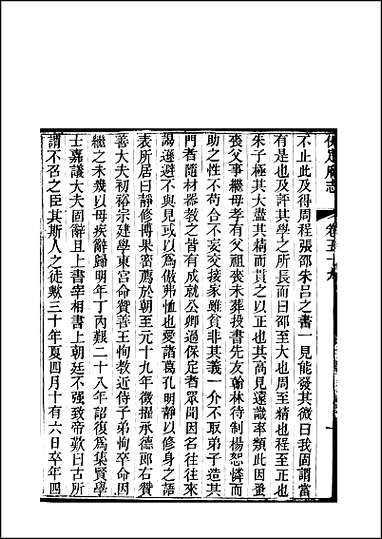 保定府志 卷五十九
不止此及得周程張邵朱呂之書一見能發其微曰我固謂當
有是也及評其學之所長而曰邵至大也周至精也程至正也
朱子極其大盡其精而貫之以正也其高見遠識率類此因蚤
喪父事繼母孝有父祖喪未葬投書先友翰林待制楊恕憐而
助之性不苟合不妄交接家雖貧非其義一介不取弟子造其
門者隨材器教之皆有成就公卿過保定者眾聞因名往往來
謁遜避不與見或以為傲弗恤也愛諸葛孔明靜以修身之語
表所居曰靜修博果密薦於朝至元十九年徵擢承德郎右贊
善大夫初裕宗建學東宮命贊善王恂教近侍子弟恂卒命因
繼之未幾以母疾辭歸明年丁內艱二十八年詔復為集賢學
士嘉議大夫固辭且上書宰相書上朝廷不强致帝歎曰古所
謂不召之臣其斯人之徒歟三十年夏四月十有六日卒年四